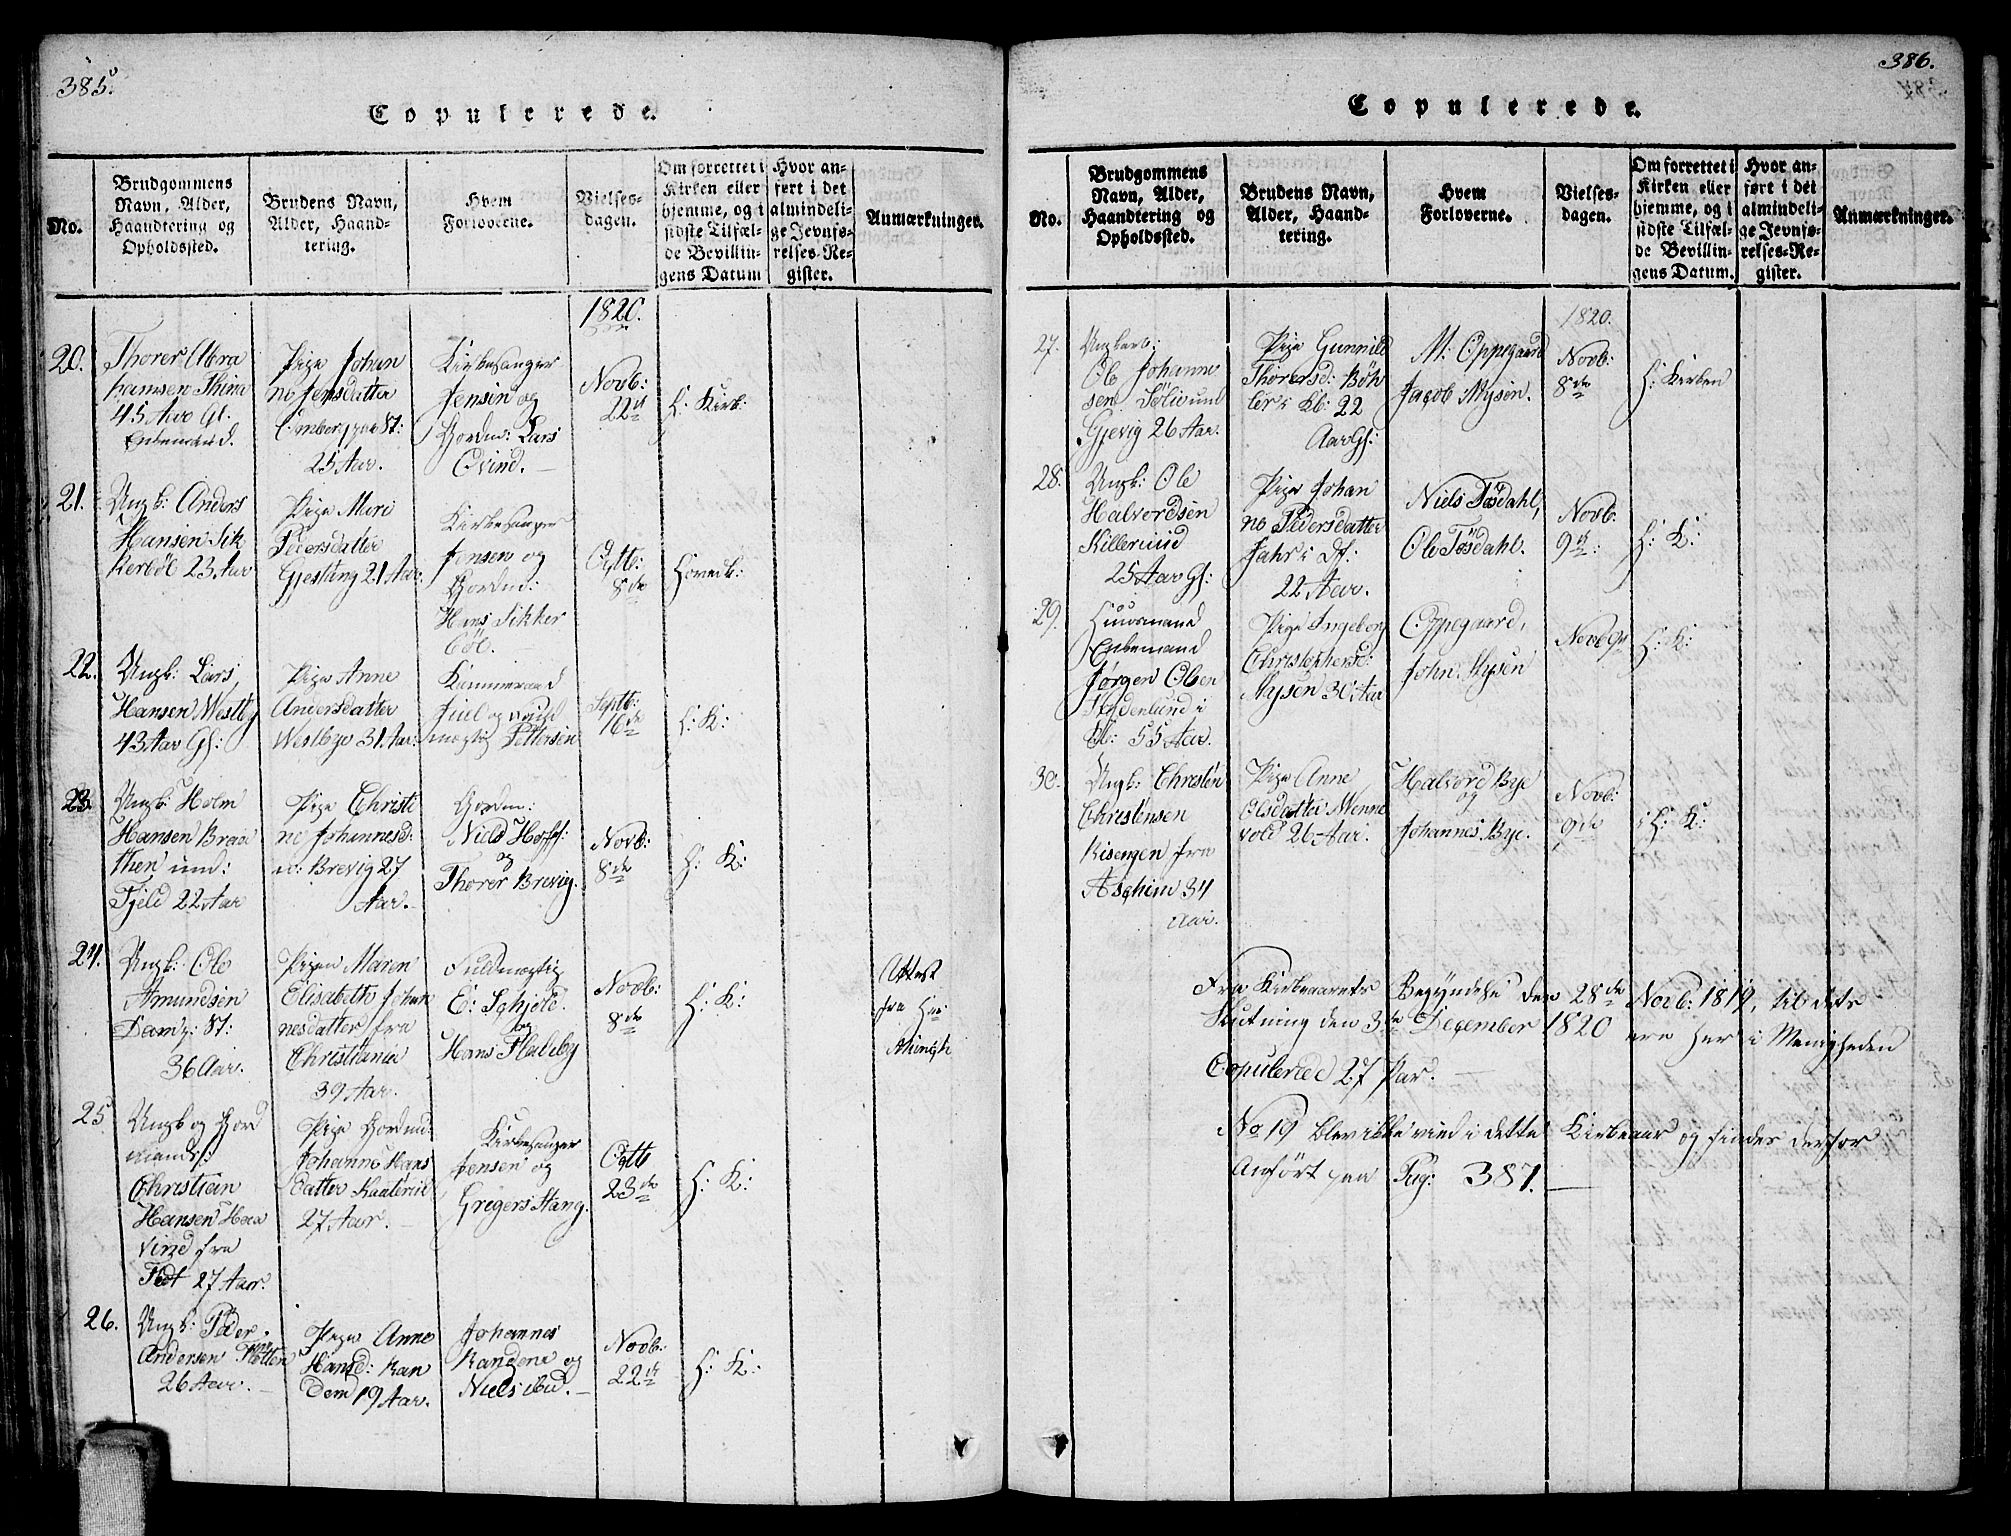 385.
Copulerede.
No.
Brudgommens
Navn, Alder,
Haandtering og
Opholdssted.
Brudens Navn,
Alder, Haand-
tering.
Hvem
Forloverne.
Vielses-
dagen.
Om forrettet i
Kirken eller
hjemme, og i
sidste Tilfæl-
de Bevillin-
gens Datum
Hvor an-
ført i det
almindeli-
ge Jevnfø-
relses-Re-
gister.
Anmærkninger.
1820.
20.
Thorer Abra
hamsen
45 Aar Gl.
Enkemand.
Pige Johan
ne Jensdatter
25 Aar.
Kirkesanger
Jensen og
Gordm: Lars
Ovind. —
Novb:
22
H: Kirk:
21.
Ungk: Anders
Hansen Sik
kerböl 23 Aar
Pige Mari
Pedersdatter
Gjesting 21 Aar.
Kirkesanger
Jensen og
Gordm:
Hans Sikker
böl.
8de
Hovedk:
22.
Ungk: Lars
Hansen Westby
43 Aar Gl:
Pige Anne
Andersdatter
Westbye 31 Aar:
Kammeraad
Juel og
mægtig Pettersen
Septb:
16de
H: K:
23.
Ungk: Holm
Hansen Braa
then und:
Fjeld 22 Aar
Pige Christi
ne Johannesd:
Brevig 27
Aar.
Gordm:
Niels Hoff:
og
Thorer Brevig.
Novb:
8de
H: K:
24.
Ungk: Ole
Amundsen
36 Aar.
Pigen Maren
Elisabeth Johan
nesdatter fra
Christiania
39 Aar.
Fuldmægtig
E: Schjöld
og
Hans Fladeby
Novb:
8de
H: K:
Attest
fra
25
Ungk og Gord
mand:
Christian
Hansen Haa
vind fra
Fedt 27 Aar.
Pige Gordm:
Johanne Hans
datter
27 Aar. —
Kirkesanger
Jensen og
Gregers Stang.
Octb
23de
H: K:
26.
Ungk: Peder
Andersen
26 Aar. —
Pige Anne
Hansd: Ran
dem 19 Aar.
Johannes
Randem og
Niels ibid. —
Novb:
22
H: K:
386.
Copulerede.
No.
Brudgommens
Navn, Alder,
Haandtering og
Opholdssted.
Brudens Navn,
Alder, Haand-
tering.
Hvem
Forloverne.
Vielses-
dagen.
Om forrettet i
Kirken eller
hjemme, og i
sidste Tilfæl-
de Bevillin-
gens Datum.
Hvor an-
ført i det
almindeli-
ge Jevnfø-
relses-Re-
gister.
Anmærkninger.
1820.
27.
Ungkarl:
Ole Johanne
sen Sølie und
Gjevig 26 Aar.
Pige Gunnild
Thorersd: Böh
ler i Kb: 22
Aar Gl:
M: Oppegaard
Jacob Mysen.
Novb:
8de
H: Kirken
28.
Ungk: Ole
Halvordsen
Killerud
25 Aar Gl:
Pige Johan
ne Pedersdatter
22 Aar.
Niels Tösdahl,
Ole Tösdahl.
Novb:
9
H: K:
29.
Huusmand
Enkemand
Jørgen Olsen
55 Aar.
Pige Ingeborg
Christophersd:
Mysen 30 Aar
Oppegaard,
John Mysen
Novb 9
H: K:
30.
Ungk: Christen
Christensen
Risengen fra
Aschim 34
Aar.
Pige Anne
Olsdatter Wenne
vold 26 Aar.
Halvord Bye
og
Johannes Bye.
Novb:
9de
H: K:
Fra Kirkeaarets Begyndelse den 28de Novb: 1819, til dets
Slutning den 3de December 1820 ere her i Menigheden
Copulerede 27 Par. —
No 19 blev ikke viet i dette Kirkeaar og findes derfor
Anført paa Pag: 387. —